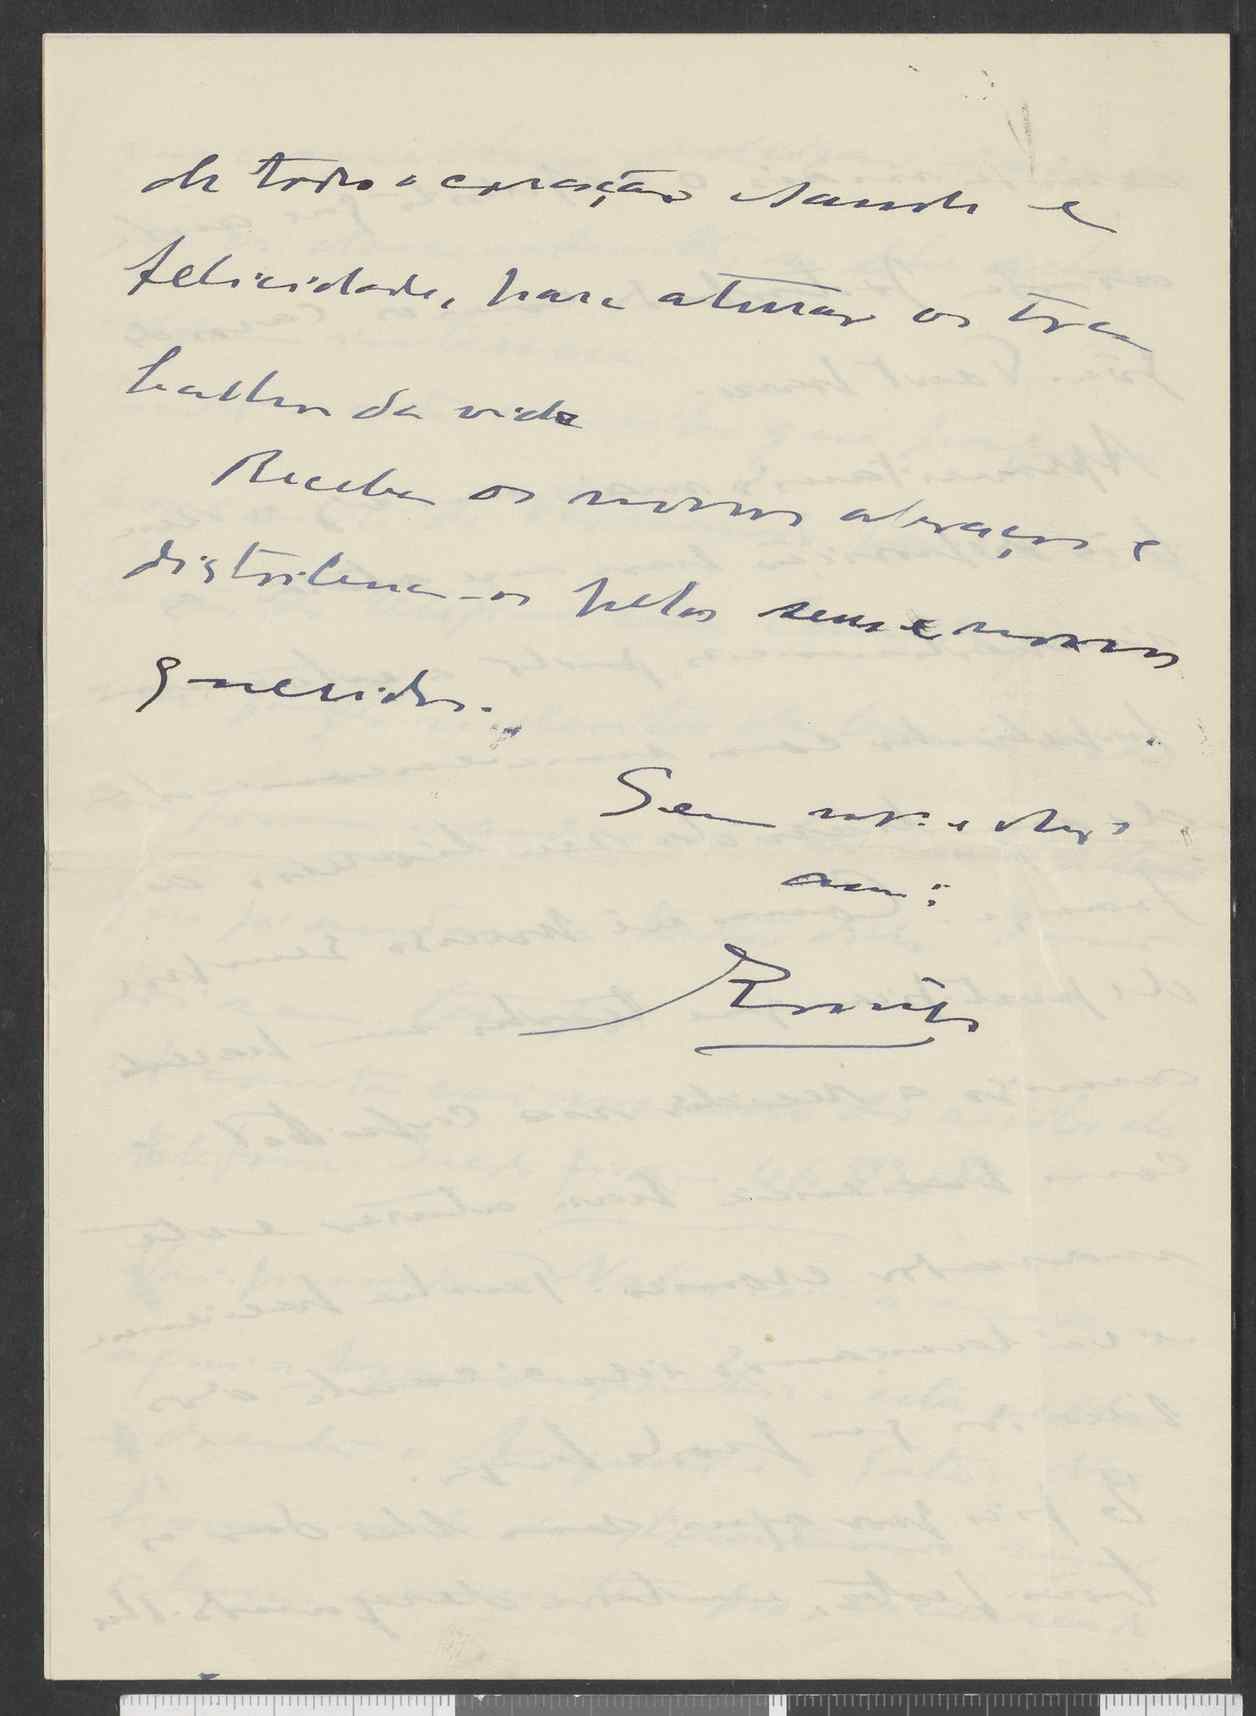 de todo o coração saude e
felicidade, para aturar os tra
balhos da vida
Receba os nossos abraços e
distribua-os pelos seus e nossos
queridos.
Seu